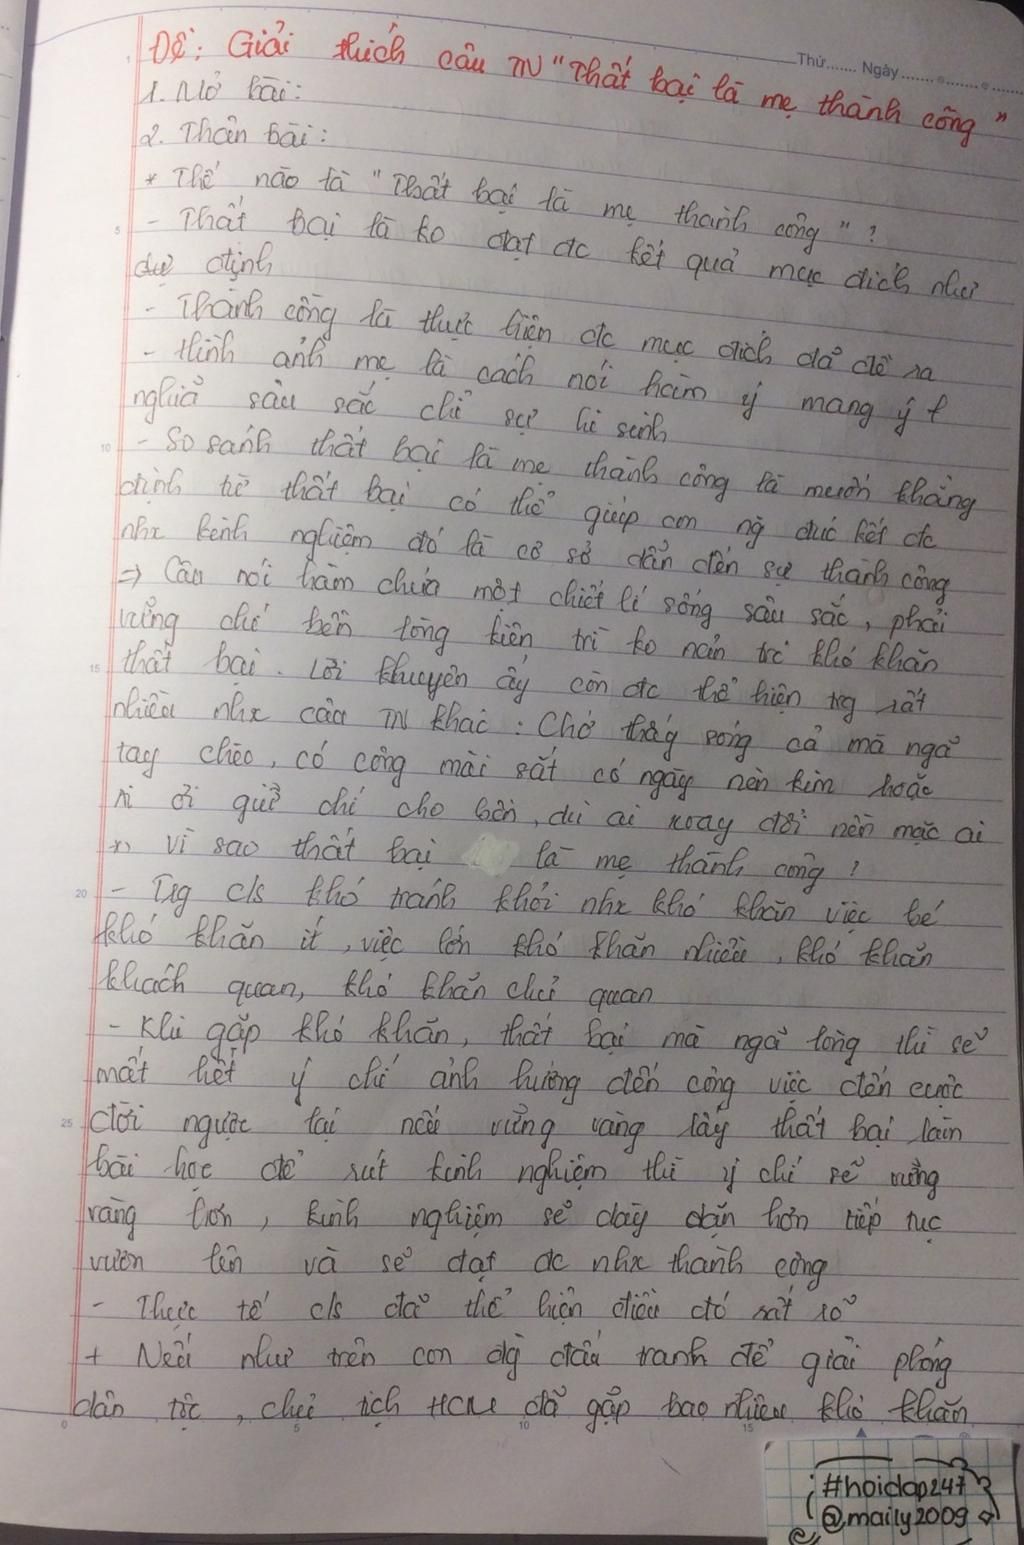 Thứ...... Ngày...............
Đề: Giải thích câu TN "Thất bại là mẹ thành công"
1. Mở bài:
2. Thân bài:
* Thế nào là "Thất bại là mẹ thành công"?
5
- Thất bại là ko đạt đc kết quả mục đích như
dự định
- Thành công là thực hiện đc mục đích đã đề ra
- Hình ảnh mẹ là cách nói hàm ý mang ý
nghĩa sâu sắc chỉ sự hi sinh
10
- So sánh thất bại là mẹ thành công là muốn khẳng
định từ thất bại có thể giúp con ng đúc kết đc
nhx kinh nghiệm đó là cơ sở dẫn đến sự thành công
=> Câu nói hàm chứa một chiết lí sống sâu sắc, phải
vững chí bền lòng kiên trì ko nản trc khó khăn
15
thất bại. Lời khuyên ấy còn đc thể hiện trg rất
nhiều nhx câu TN khác: Chớ thấy sóng cả mà ngã
tay chèo, có công mài sắt có ngày nên kim hoặc
ai ơi giữ chí cho bền, dù ai xoay đổi nền mặc ai
*) Vì sao thất bại là mẹ thành công?
20
- Trg c/s khó tránh khỏi nhx khó khăn việc bé
khó khăn ít, việc lớn khó khăn nhiều, khó khăn
khách quan, khó khăn chủ quan
- Khi gặp khó khăn, thất bại mà ngã lòng thì sẽ
mất hết ý chí ảnh hưởng đến công việc đến cuộc
25
đời ngược lại nếu vững vàng lấy thất bại làm
bài học để rút kinh nghiệm thì ý chí sẽ vững
vàng hơn, kinh nghiệm sẽ dày dặn hơn tiếp tục
vươn lên và sẽ đạt đc nhx thành công
- Thực tế c/s đã thể hiện điều đó rất rõ
+ Nếu như trên con đg đấu tranh để giải phóng
dân tộc, chủ tịch HCM đã gặp bao nhiêu khó khăn
0 5 10 15
#hoidap247
@maily2009